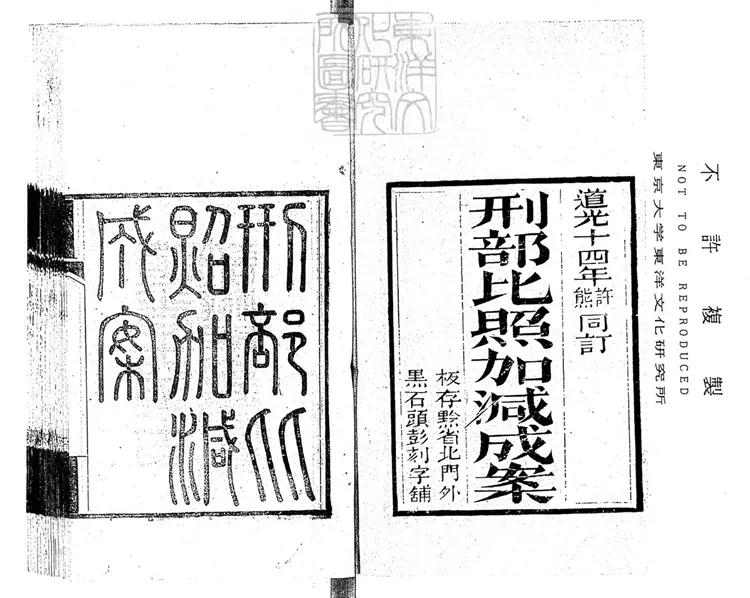 不許複製
NOT TO BE REPRODUCED
東京大学東洋文化研究所
道光十四年許熊同訂
刑部比照加減成案
板存黔省北門外
黑石頭彭刻字舖
刑部比
照加減
成案
東洋文
化研究
所圖書